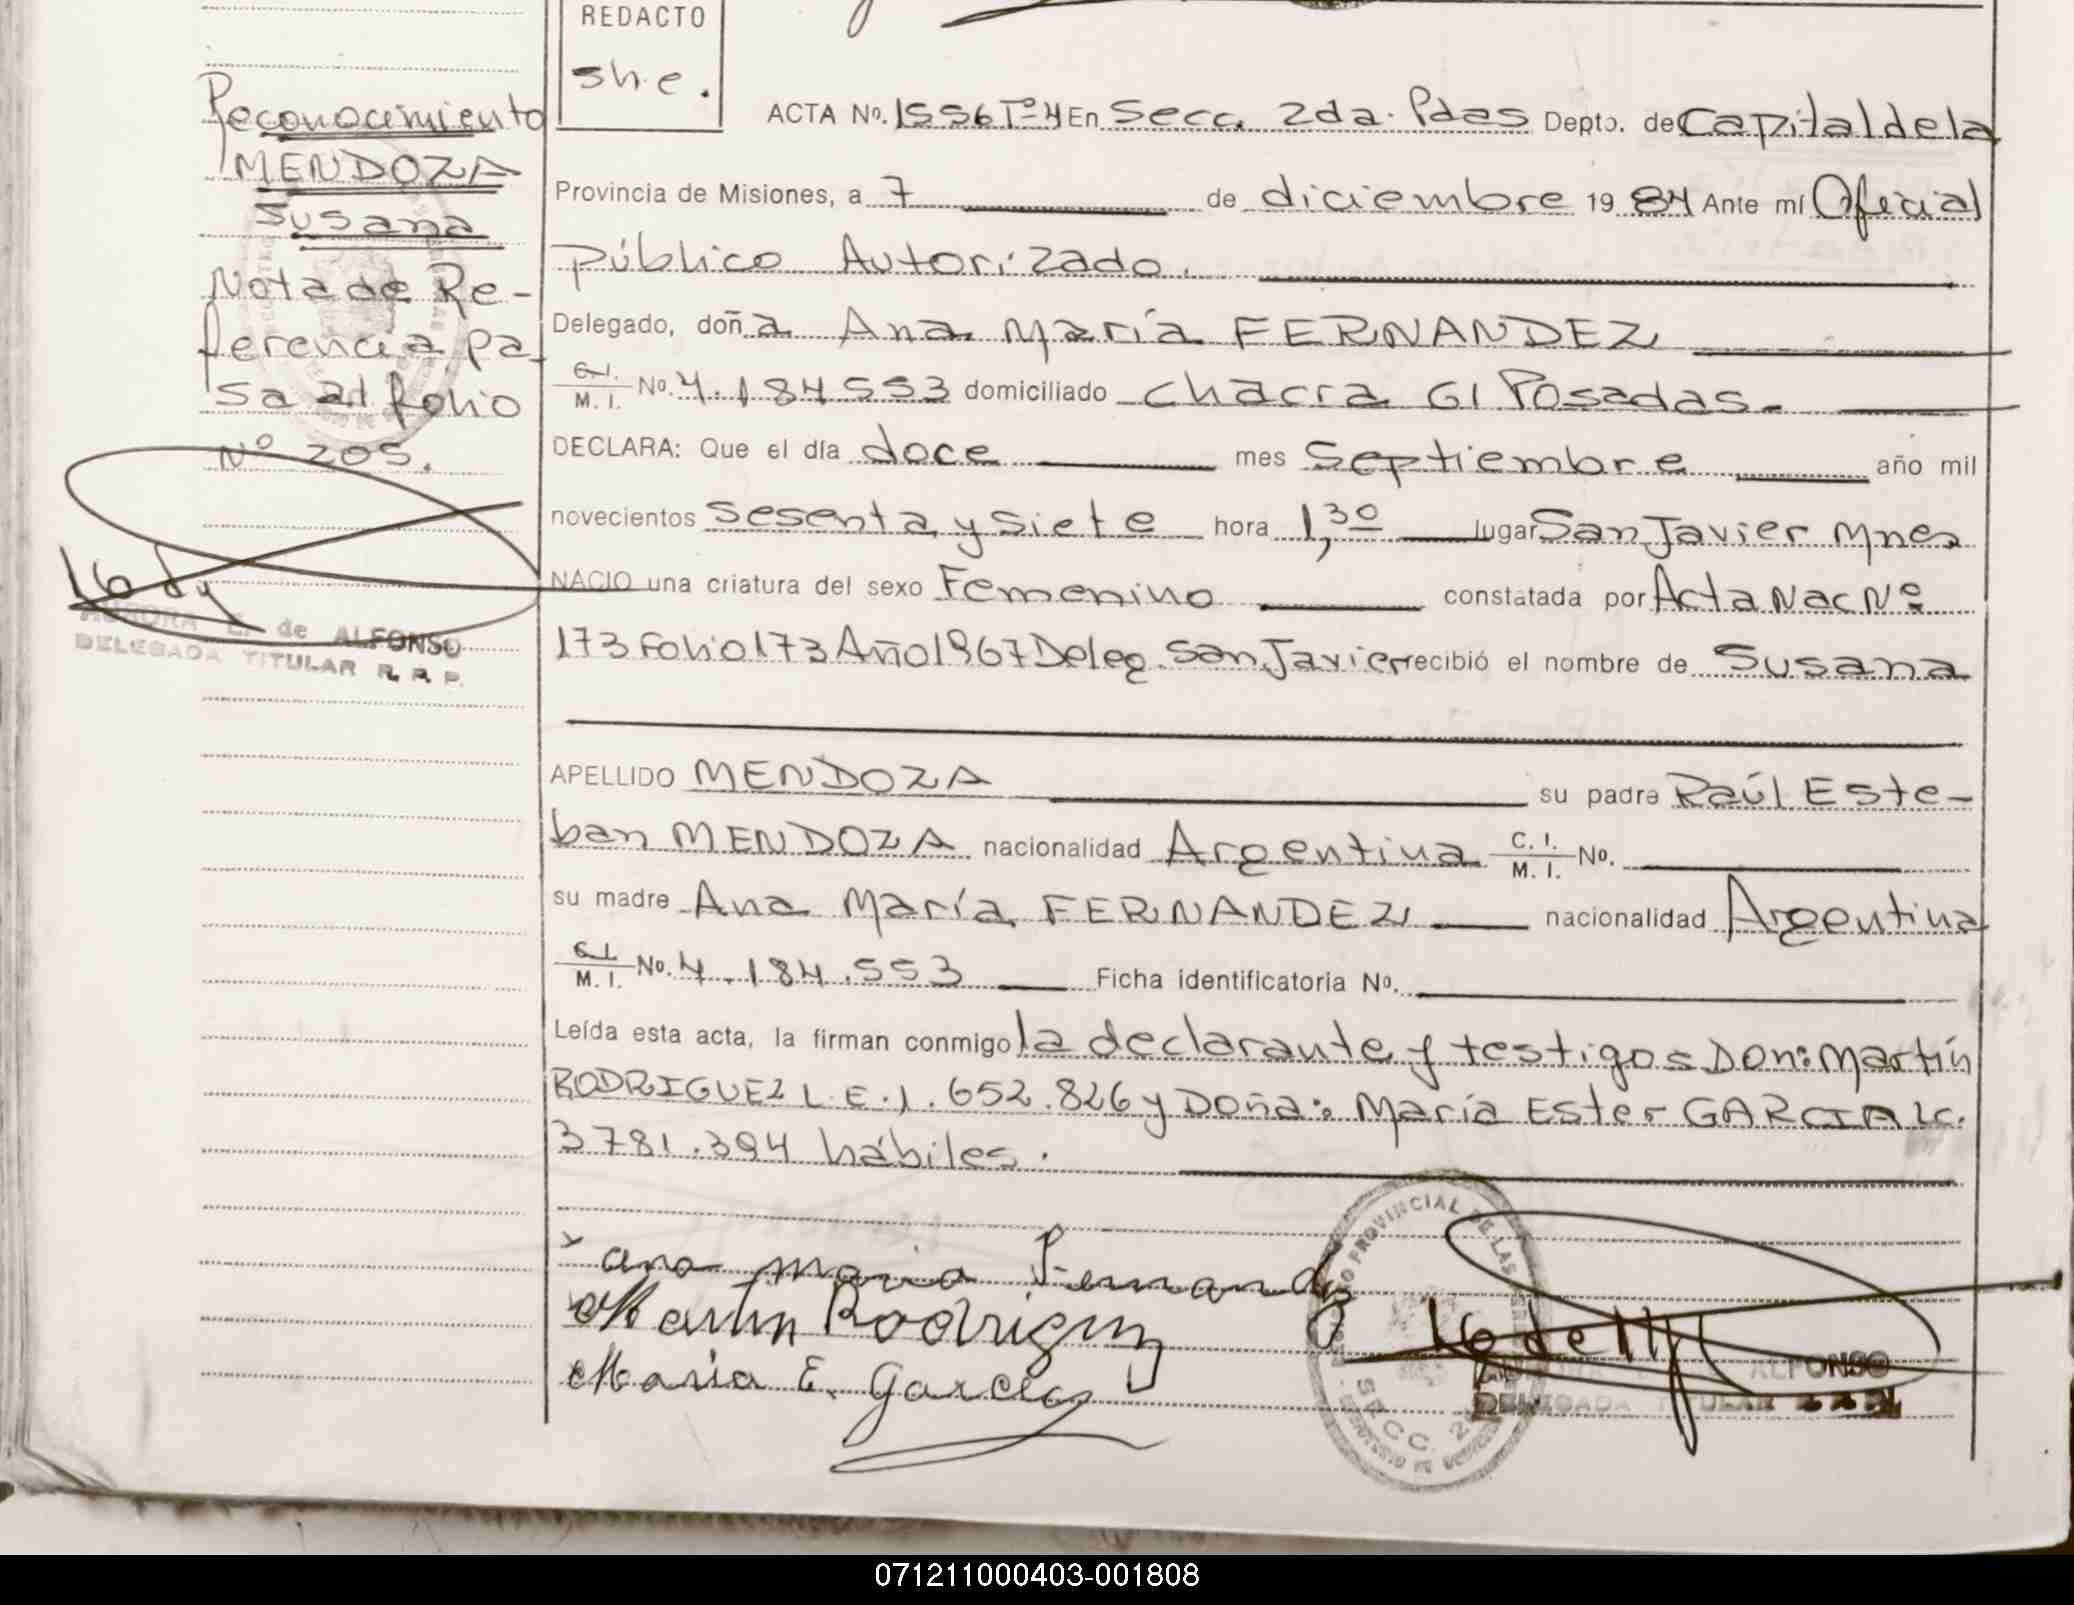 REDACTO
she.
Reconocimiento
MENDOZA
Susana
Nota de Re-
ferencia pa-
sa al folio
Nº 205.
AURORA E. de ALFONSO
DELEGADA TITULAR R. P. P.
ACTA No. 1556 Tº 4 En Secc. 2da. Pdas Depto. de Capital de la
Provincia de Misiones, a 7 de diciembre 1984 Ante mí Oficial
Público Autorizado.
Delegado, doña Ana María FERNANDEZ
C.I. M. I. No. 4.184553 domiciliado Chacra 61 Posadas.
DECLARA: Que el día doce mes Septiembre año mil
novecientos sesenta y siete hora 1,30 lugar San Javier Mnes
NACIO una criatura del sexo Femenino constatada por Acta Nac Nº
173 Folio 173 Año 1967 Deleg. San Javier recibió el nombre de Susana
APELLIDO MENDOZA su padre Raúl Este-
ban MENDOZA nacionalidad Argentina C. I. M. I. No.
su madre Ana María FERNANDEZ nacionalidad Argentina
C.I. M. I. No. 4.184.553 Ficha identificatoria No.
Leída esta acta, la firman conmigo la declarante y testigos Don: Martín
RODRIGUEZ L.E.1.652.826 y Doña: María Ester GARCIA LC.
3781.394 hábiles.
Ana maria Fernandez
Martin Rodriguez
Maria E. Garcia
PROVINCIAL DE LAS
SECC. 2
ALFONSO
DELEGADA TITULAR
071211000403-001808